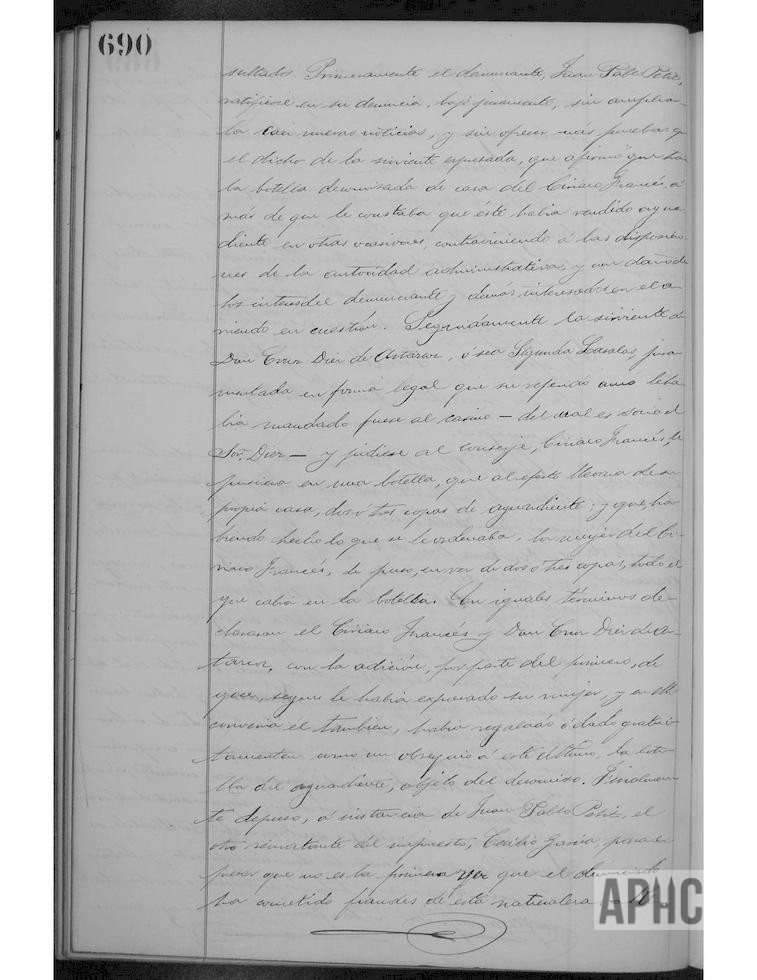 690
sultados. Primeramente el denunciante, Juan Pablo Petit,
ratificose en su denuncia, bajo juramento, sin ampliar-
la con nuevas noticias, y sin ofrecer más pruebas q
el dicho de la sirviente expresada, que afirmó que
la botella decomisada de casa del Ciriaco Francés, á
más de que le constaba que éste habia vendido aguar
diente en otras ocasiones, contraviniendo á las disposicio-
nes de la autoridad administrativa, y con daño de
los interes del denunciante y demás interesados en el a-
rriendo en cuestión. Seguidamente la sirviente de
Don Cruz Diez de Antarcor, ó sea Segunda Lasalas, jura-
mentada en forma legal que su referido amo le ha
bia mandado fuese al casino — del cual es socio el
Sor. Diez — y pidiese al conserje, Ciriaco Francés, le
pusiera en una botella, que al efecto llevara de su
propia casa, dos ó tres copas de aguardiente; y que, ha
biendo hecho lo que se le ordenaba, la mujer del Ci-
riaco Francés, le puso, en vez de dos o tres copas, todo el
que cabia en la botella. En iguales términos de-
clararon el Ciriaco Francés y Don Cruz Diez de An-
tarcor, con la adición, por parte del primero, de
que, segun le habia expresado su mujer, y en ello
convenia el tambien, habia regalado ó dado gratui-
tamente, como un obsequio á este último, la bote-
lla del aguardiente, objeto del decomiso. Finalmen-
te depuso, á instancia de Juan Pablo Petit, el
otro rematante del impuesto, Cecilio Garcia, para ex
presar que no es la primera vez que el denunciado
ha cometido fraudes de esta naturaleza. — Re-
APHC